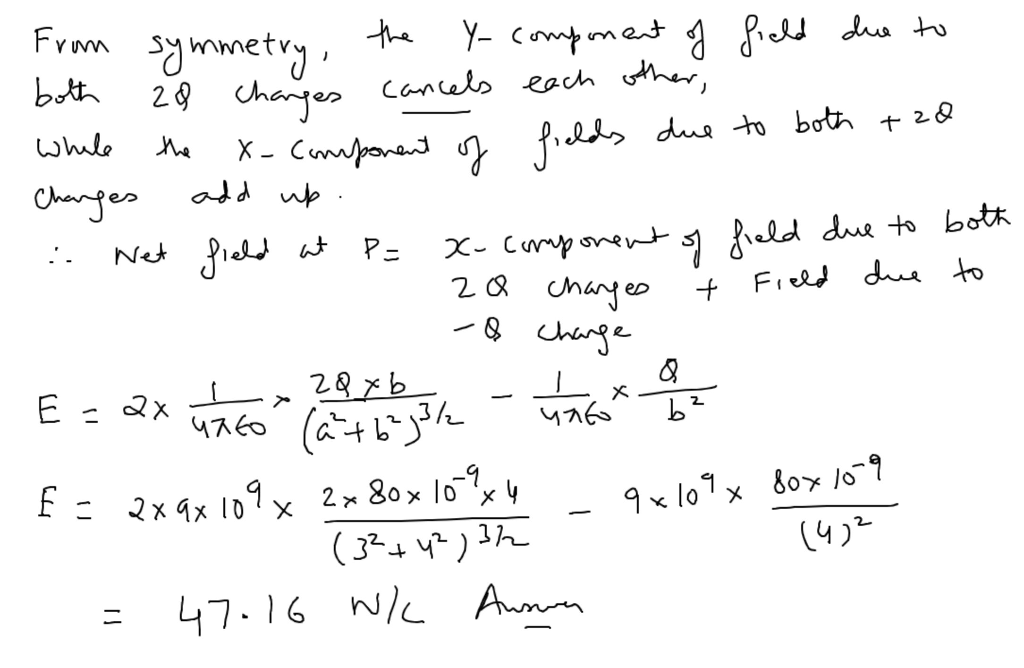 From symmetry, the Y- component of field due to
both 2Q charges cancels each other,
While the X- component of fields due to both +2Q
charges add up.
∴ Net field at P = X- component of field due to both
2Q charges + Field due to
-Q charge
E = 2x 1/4πε0 × 2Q×b/(a²+b²)^3/2 - 1/4πε0 × Q/b²
E = 2×9×10^9 × 2×80×10^-9×4/(3²+4²)^3/2 - 9×10^9 × 80×10^-9/(4)²
= 47.16 N/C Answer